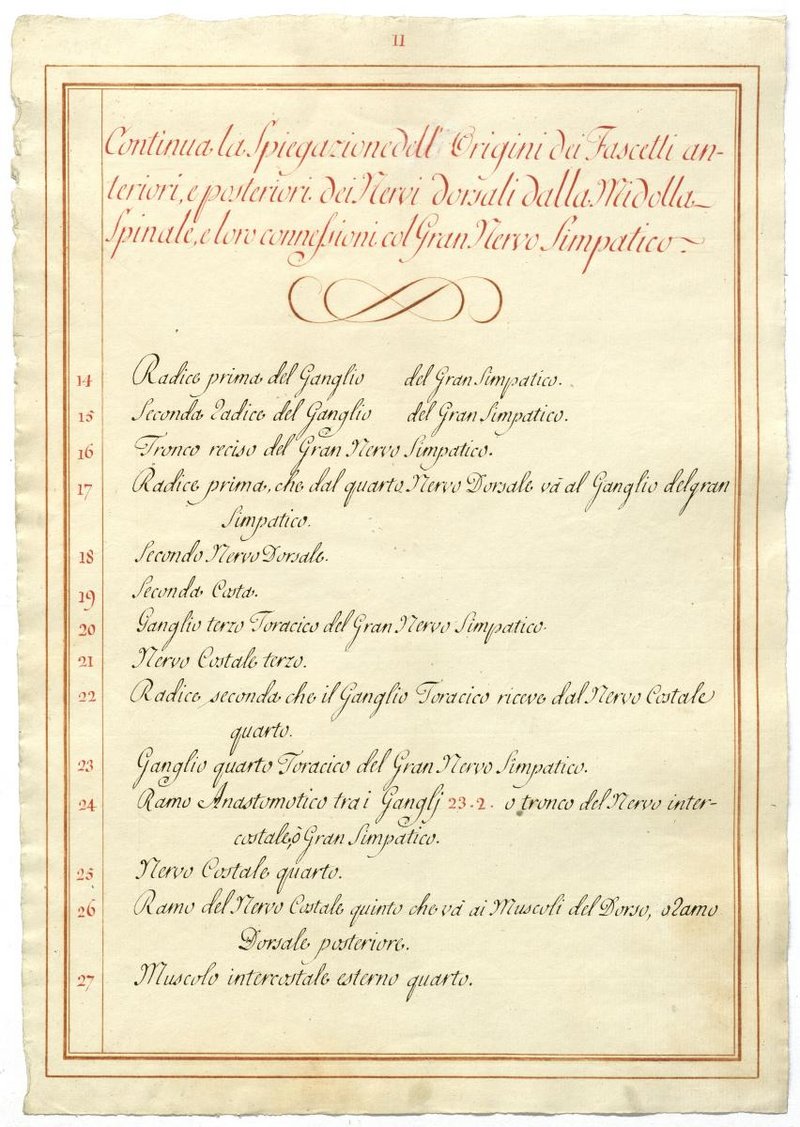 II
Continua la Spiegazione dell' Origini dei Fascetti an-
teriori, e posteriori dei Nervi dorsali dalla Midolla
Spinale, e loro connessioni col Gran Nervo Simpatico
14 Radice prima del Ganglio del Gran Simpatico.
15 Seconda radice del Ganglio del Gran Simpatico.
16 Tronco reciso del Gran Nervo Simpatico.
17 Radice prima, che dal quarto Nervo Dorsale và al Ganglio del gran
Simpatico.
18 Secondo Nervo Dorsale.
19 Seconda Costa.
20 Ganglio terzo Toracico del Gran Nervo Simpatico.
21 Nervo Costale terzo.
22 Radice seconda che il Ganglio Toracico riceve dal Nervo Costale
quarto.
23 Ganglio quarto Toracico del Gran Nervo Simpatico.
24 Ramo Anastomotico tra i Ganglj 23.2. o tronco del Nervo inter-
costale, ò Gran Simpatico.
25 Nervo Costale quarto.
26 Ramo del Nervo Costale quinto che và ai Muscoli del Dorso, o Ramo
Dorsale posteriore.
27 Muscolo intercostale esterno quarto.